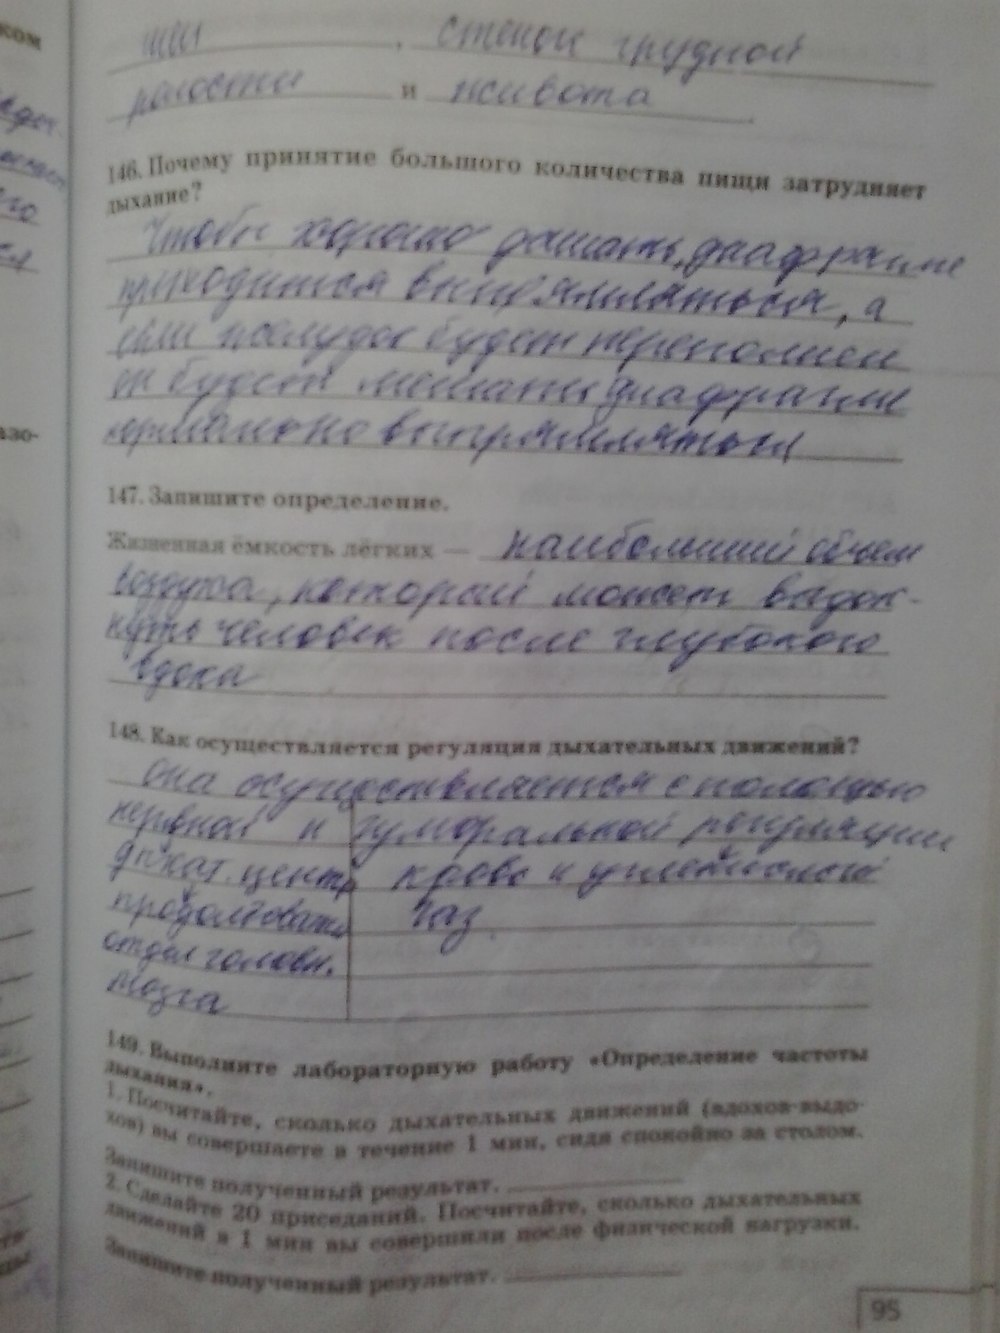 шеи , стенок грудной
полости и живота
146. Почему принятие большого количества пищи затрудняет
дыхание?
Чтобы хорошо дышать, диафрагме
приходится выпрямляться, а
если желудок будет переполнен
он будет мешать диафрагме
нормально выпрямляться
147. Запишите определение.
Жизненная ёмкость лёгких — наибольший объем
воздуха, который может выдох-
нуть человек после глубокого
вдоха
148. Как осуществляется регуляция дыхательных движений?
Она осуществляется с помощью
нервной и гуморальной регуляции
дыхат. центр кровь и углекислый
продолговаты газ.
отдел головн.
мозга
149. Выполните лабораторную работу «Определение частоты
дыхания».
1. Посчитайте, сколько дыхательных движений (вдохов-выдо-
хов) вы совершаете в течение 1 мин, сидя спокойно за столом.
Запишите полученный результат.
2. Сделайте 20 приседаний. Посчитайте, сколько дыхательных
движений в 1 мин вы совершили после физической нагрузки.
Запишите полученный результат.
95